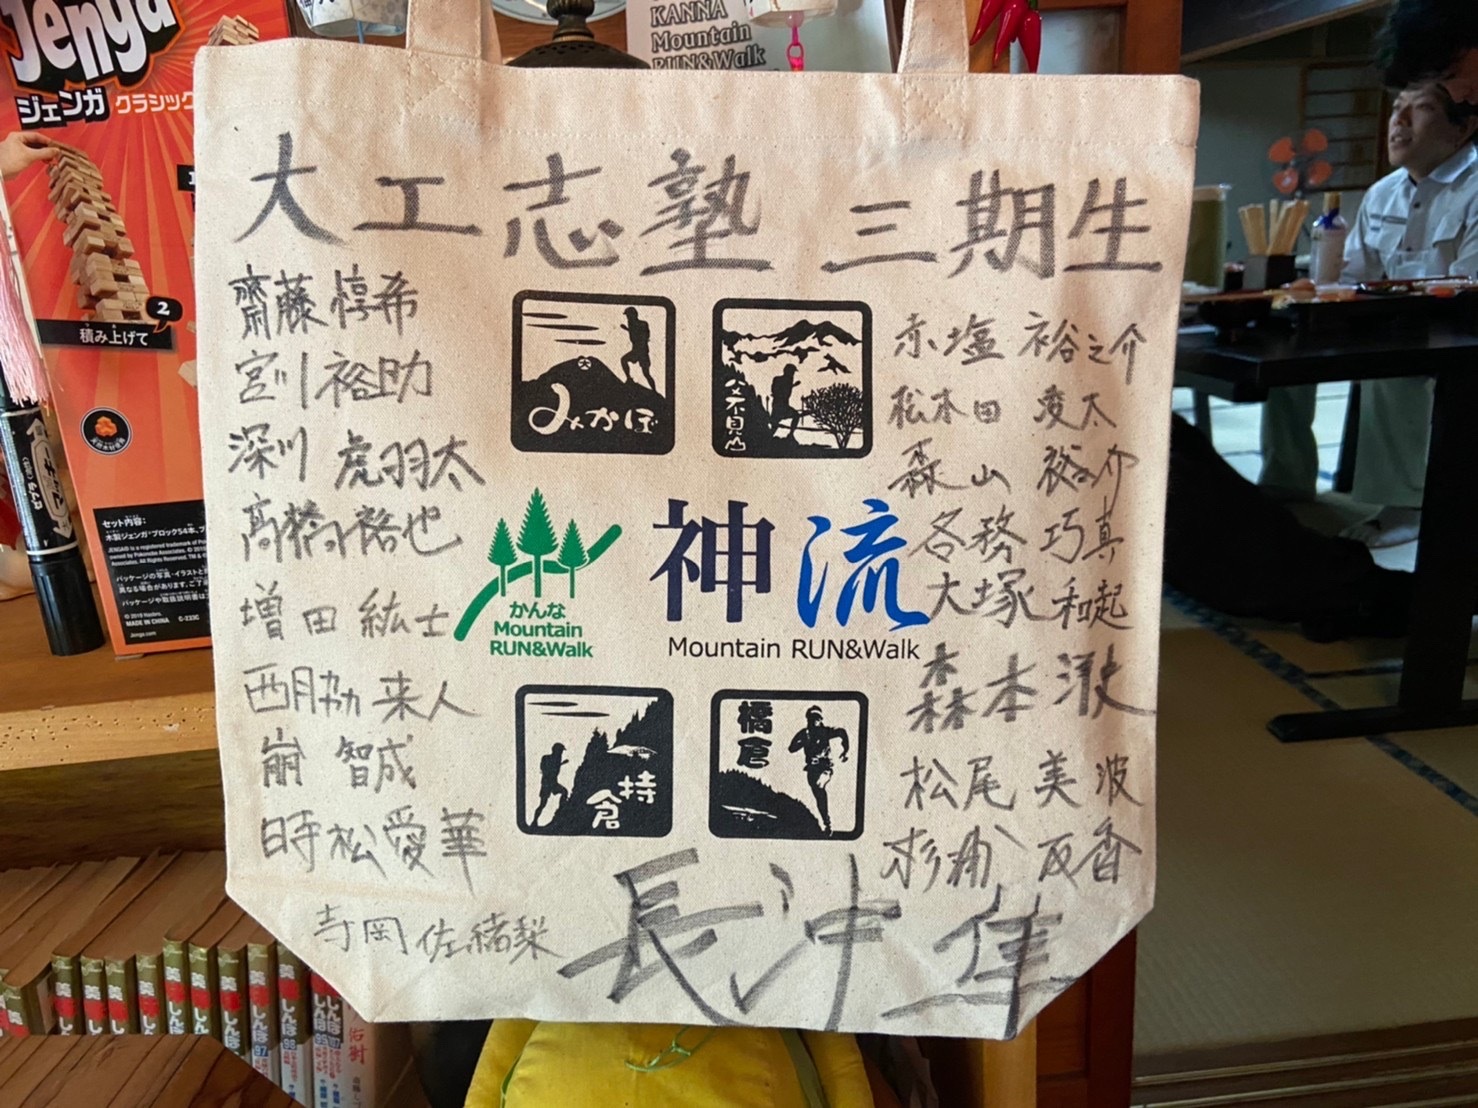 KANNA
Mountain
RUN&Walk
Jenga
ジェンガ クラシック
2
積み上げて
セット内容:
MADE IN CHINA
マッキー
大工志塾 三期生
齋藤惇希
宮川裕助
深川 虎羽太
髙橋裕也
増田紘士
西脇来人
崩 智成
時松愛華
寺岡佐緒梨
みかほ
父不見山
かんな
Mountain
RUN&Walk
神流
Mountain RUN&Walk
持倉
橋倉
赤塩 裕之介
松本田 凌太
森山 裕介
各務 巧真
大塚和起
森本
松尾 美波
杉浦 友香
長沢 隼
美しんぼ
美しんぼ